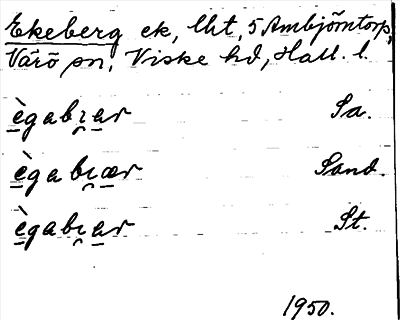 Ekeberg ek, lht, 5 Ambjörntorp,
Värö sn, Viske hd, Hall. l.
ègabɪ̯ar Sa.
ègabɪ̯ær Sand.
ègabɪ̯ar St.
1950.